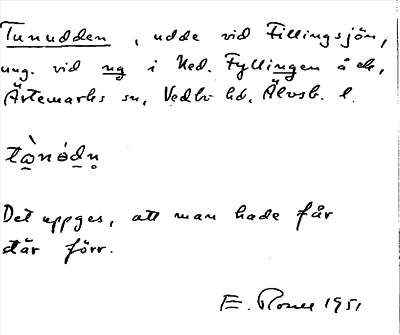 Tunudden, udde vid Fillingsjön,
ung. vid ng i Ned. Fyllingen å ek,
Ärtemarks sn, Vedbo hd, Älvsb. l.
tò̱nödn̥
Det uppges, att man hade får
där förr.
E. Rosell 1951